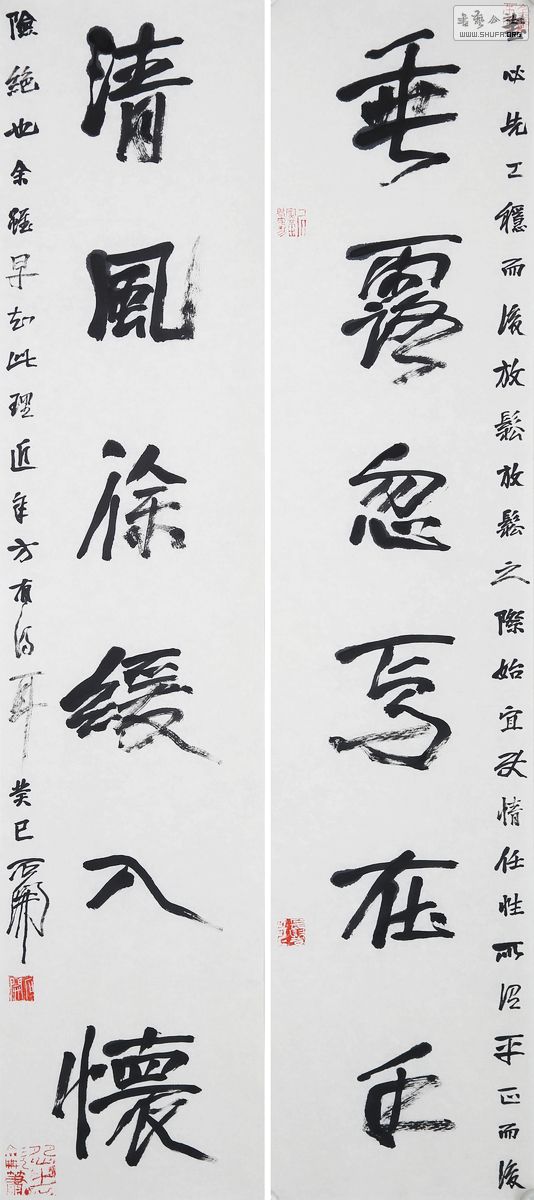 書公藝
WWW.SHUFA.ORG
必先工穩而後放鬆放鬆之際始宜情任性所謂平正而後
垂露忽焉在手
清風徐緩入懷
險絕也余雖早知此理近年方有得耳癸巳石開